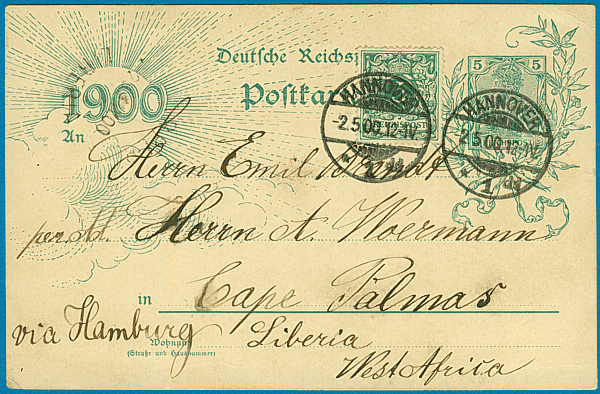 Deutsche Reichs
1900
Postka
5 5
HANNOVER
2.5.00.12-1V.
1
HANNOVER
5.00.12-1V.
1
An
Herrn Emil
per Ad. Herrn A. Woermann
in Cape Palmas
via Hamburg
Liberia
Wohnung
(Straße und Hausnummer)
West Africa